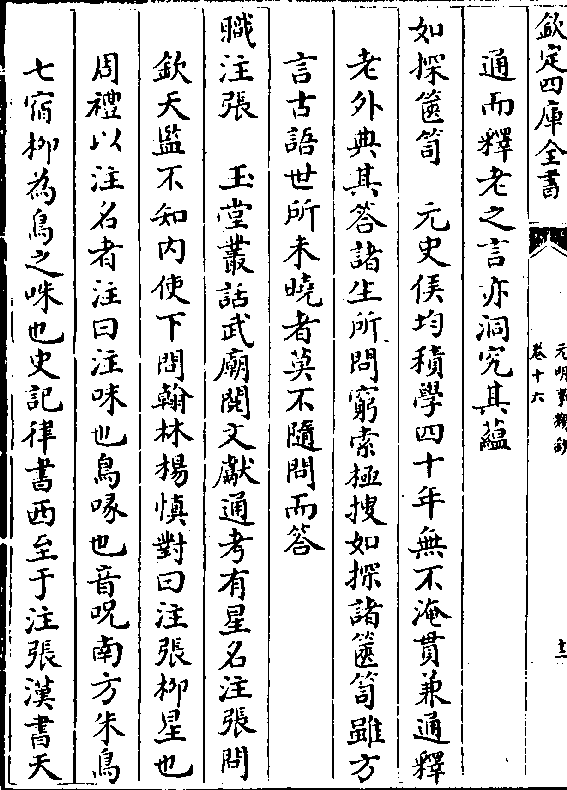 欽定四庫全書
元明事類鈔
卷十六
十二
通而釋老之言亦洞究其蘊
如探篋笥　元史侯均積學四十年無不淹貫兼通釋
老外典其答諸生所問窮索極搜如探諸篋笥雖方
言古語世所未曉者莫不隨問而答
職注張　玉堂叢話武廟閱文獻通考有星名注張問
欽天監不知内使下問翰林楊慎對曰注張柳星也
周禮以注名者注曰注咮也鳥喙也音呪南方朱鳥
七宿柳為鳥之咮也史記律書西至于注張漢書天